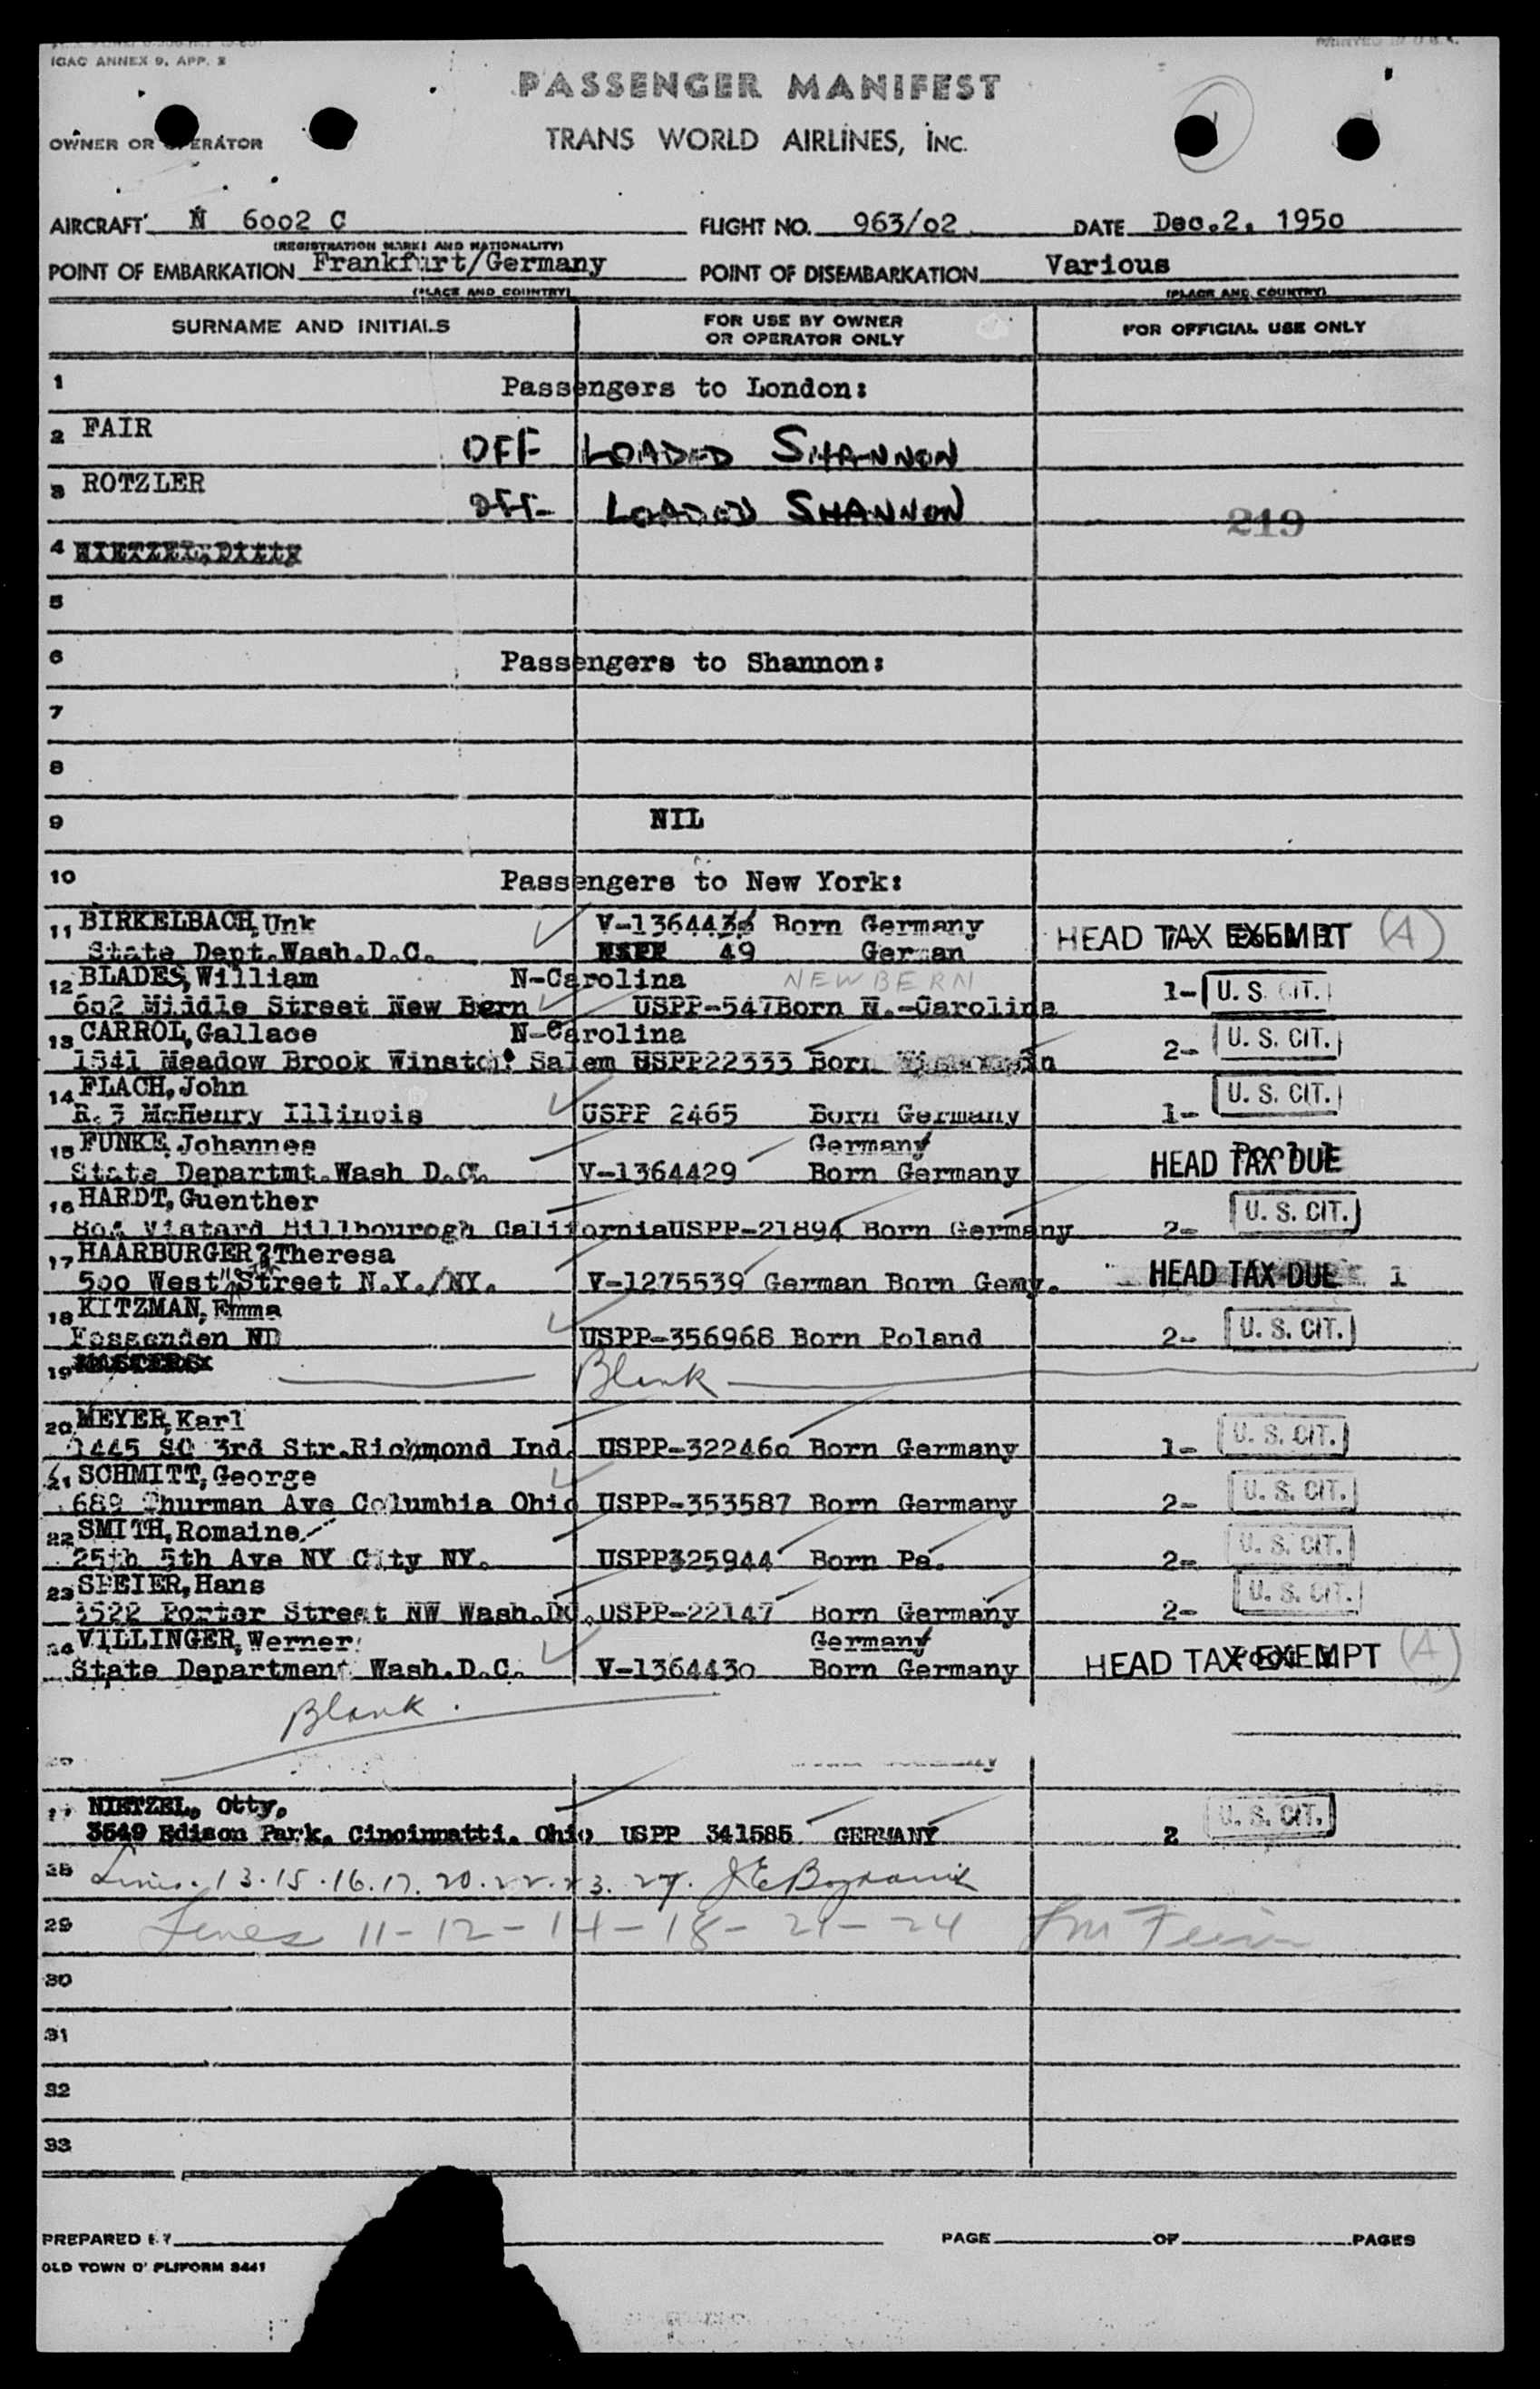 ICAO ANNEX 9, APP. 2
PASSENGER MANIFEST
OWNER OR OPERATOR TRANS WORLD AIRLINES, INC.
AIRCRAFT N 6002 C FLIGHT NO. 963/02 DATE Dec.2, 1950
(REGISTRATION MARKS AND NATIONALITY)
POINT OF EMBARKATION Frankfurt/Germany POINT OF DISEMBARKATION Various
(PLACE AND COUNTRY) (PLACE AND COUNTRY)
SURNAME AND INITIALS FOR USE BY OWNER OR OPERATOR ONLY FOR OFFICIAL USE ONLY
1 Passengers to London:
2 FAIR OFF LOADED SHANNON
3 ROTZLER OFF LOADED SHANNON
219
4
5
6 Passengers to Shannon:
7
8
9 NIL
10 Passengers to New York:
11 BIRKELBACH, Unk Born Germany
State Dept.Wash.D.C. 49 German HEAD TAX EXEMPT (A)
12 BLADES, William N-Carolina NEW BERN
602 Middle Street New Bern USPP-547 Born N.-Carolina 1- U. S. CIT.
13 CARROL, Gallace N-Carolina
1341 Meadow Brook Winston Salem USPP22333 Born 2- U. S. CIT.
14 FLACH, John
R.3 McHenry Illinois USPP 2465 Born Germany 1- U. S. CIT.
15 FUNKE, Johannes Germany
State Departmt.Wash D.C. V-1364429 Born Germany HEAD TAX DUE
16 HARDT, Guenther
Hillbourogh California USPP-21894 Born Germany 2- U. S. CIT.
17 HAARBURGER, Theresa
500 West Street N.Y./NY. V-1275539 German Born Gemy. HEAD TAX DUE 1
18 KITZMAN, Emma
Fessenden ND USPP-356968 Born Poland 2- U. S. CIT.
19 Blank
20 MEYER, Karl
1445 SO 3rd Str.Richmond Ind. USPP-322460 Born Germany 1- U. S. CIT.
21 SCHMITT, George
689 Thurman Ave Columbia Ohio USPP-353587 Born Germany 2- U. S. CIT.
22 SMITH, Romaine
25th 5th Ave NY City NY. USPP325944 Born Pa. 2- U. S. CIT.
23 SPEIER, Hans
3522 Porter Street NW Wash.DC. USPP-22147 Born Germany 2- U. S. CIT.
24 VILLINGER, Werner Germany
State Department Wash.D.C. V-1364430 Born Germany HEAD TAX EXEMPT (A)
Blank
NIETZEL, Otty.
3549 Edison Park. Cincinnatti. Ohio USPP 341585 GERMANY 2 U. S. CIT.
28 Lines. 13.15.16.17.20.22.23. 27.
29 Lines 11-12-14-18-21-24
30
31
32
33
PREPARED BY PAGE OF PAGES
OLD TOWN D' PLIFORM 8441